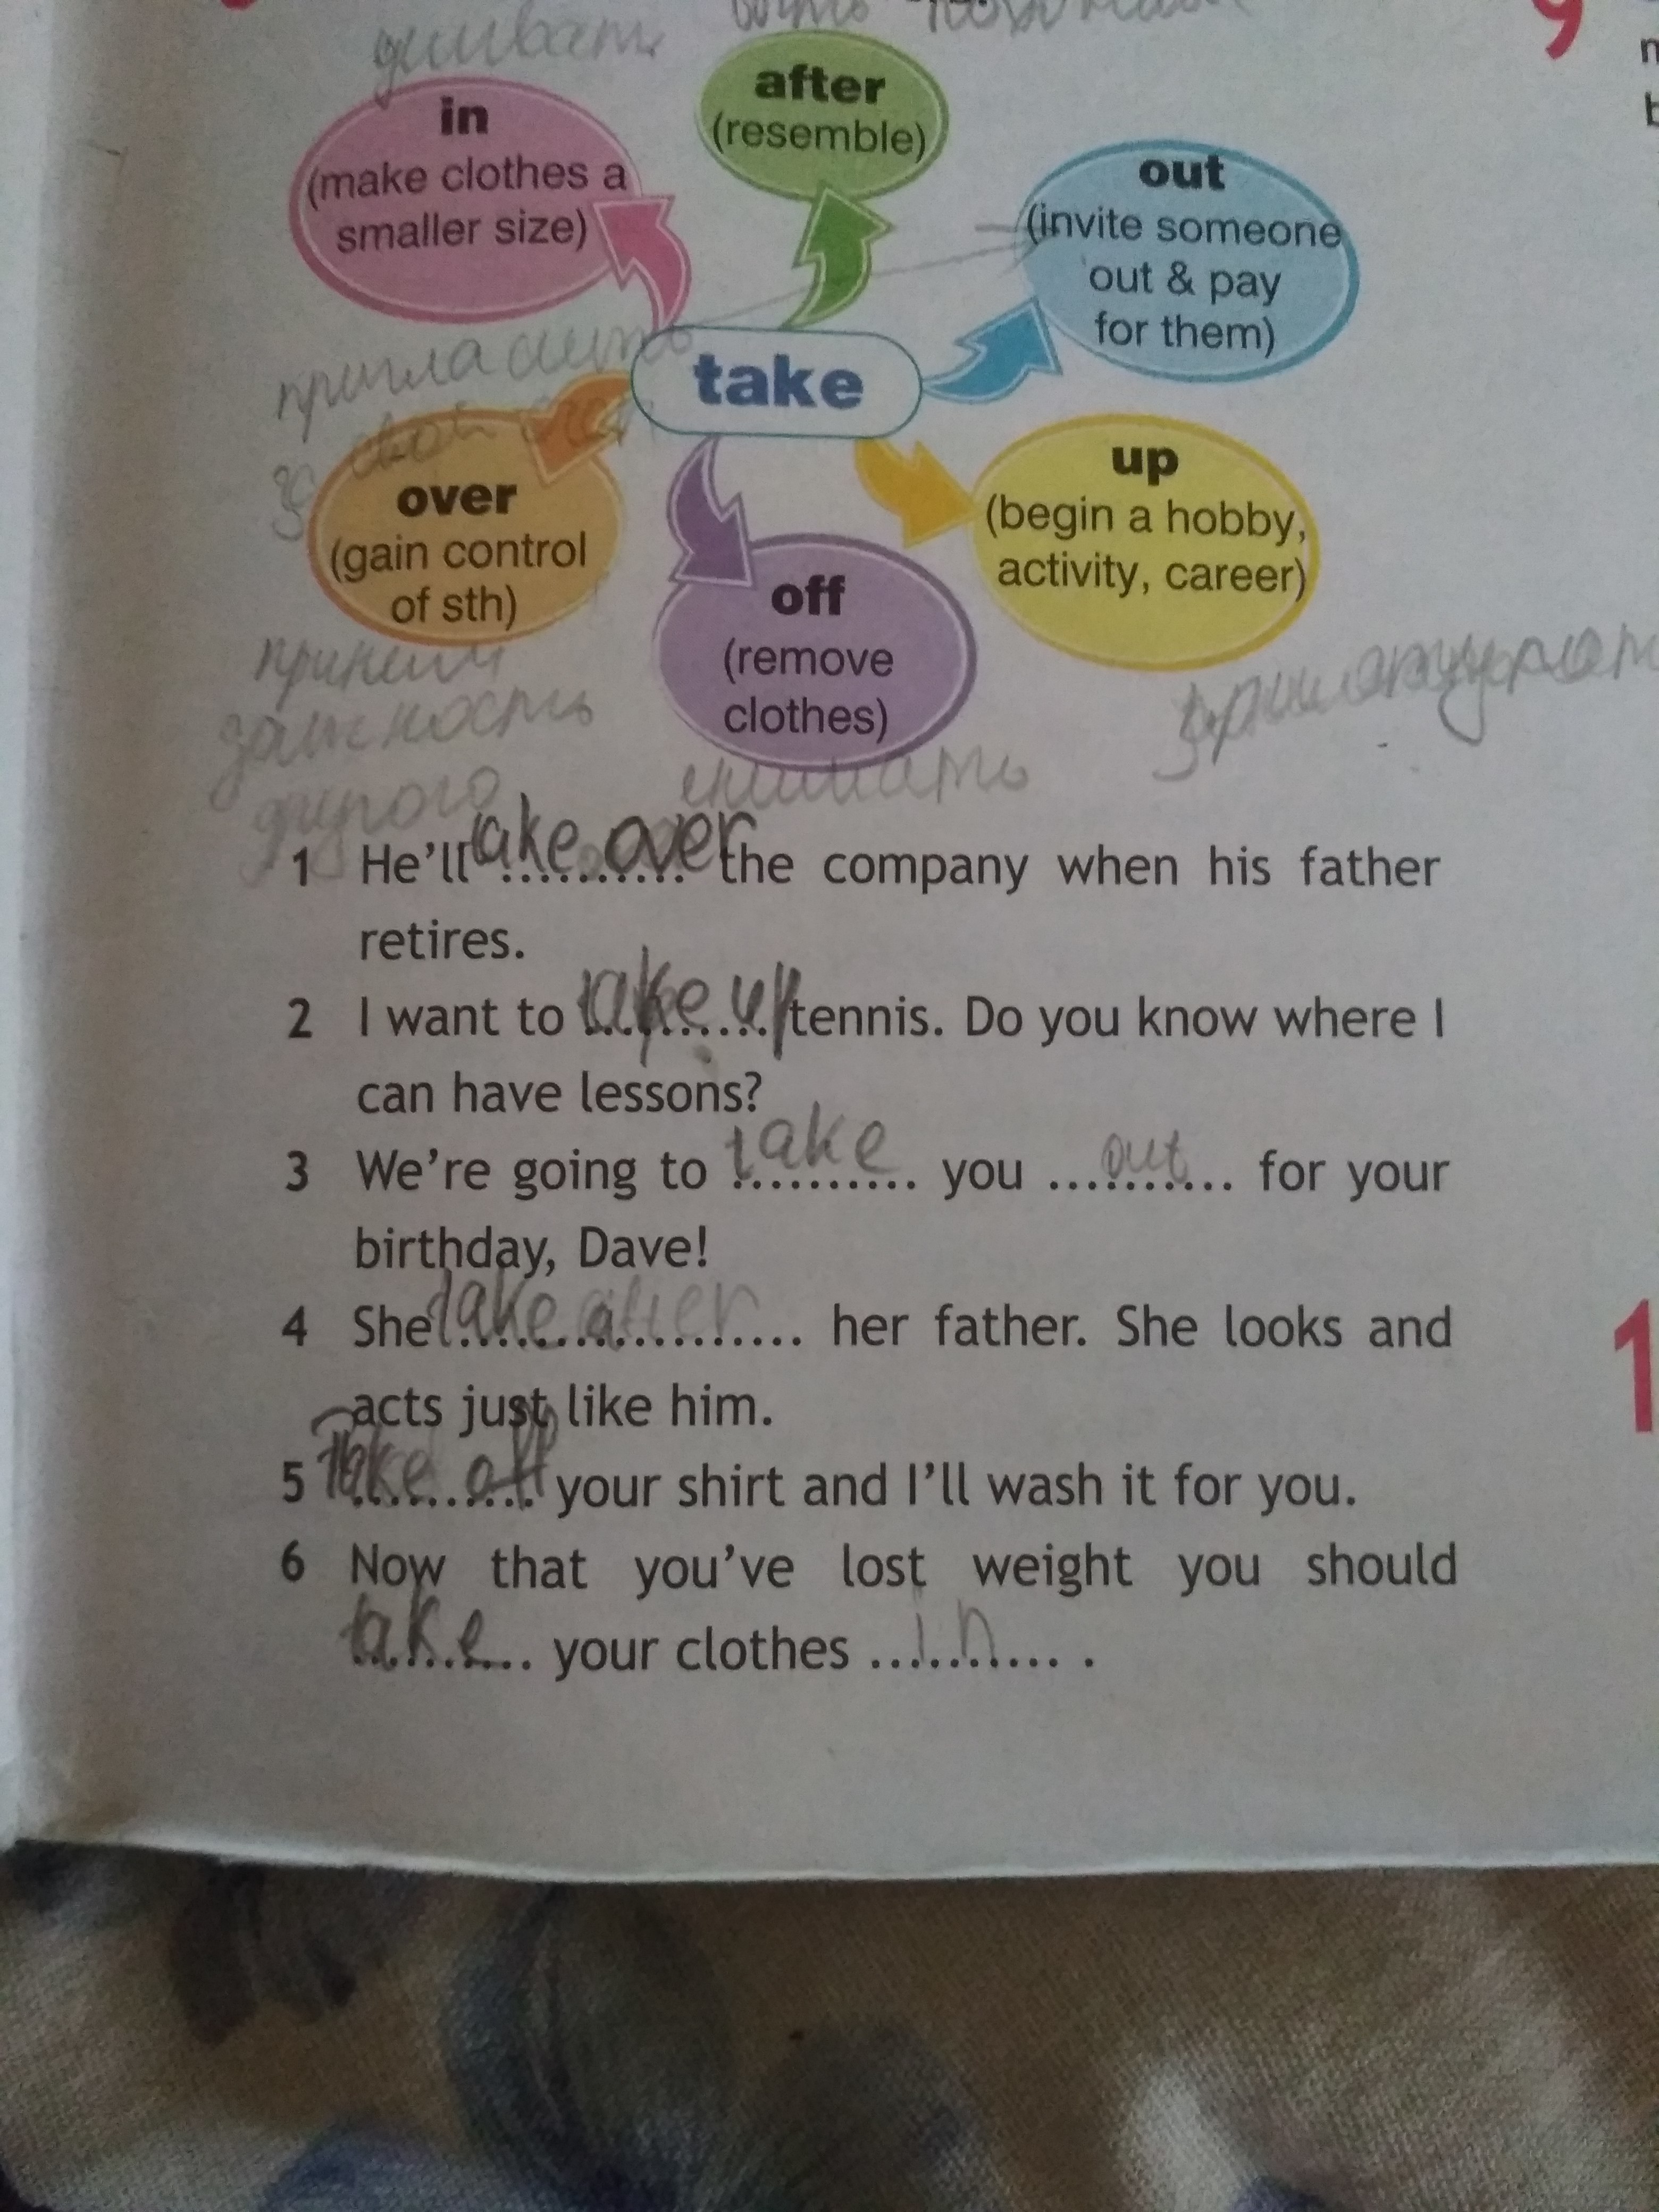 9
in
(make clothes a
smaller size)
after
(resemble)
out
(invite someone
out & pay
for them)
пригласить
за свой
take
over
(gain control
of sth)
up
(begin a hobby,
activity, career)
off
(remove
clothes)
другого
снимать
1 He'll take over the company when his father
retires.
2 I want to take up tennis. Do you know where I
can have lessons?
3 We're going to take you out for your
birthday, Dave!
4 She take after her father. She looks and
acts just like him.
5 Take off your shirt and I'll wash it for you.
6 Now that you've lost weight you should
take your clothes in .
1